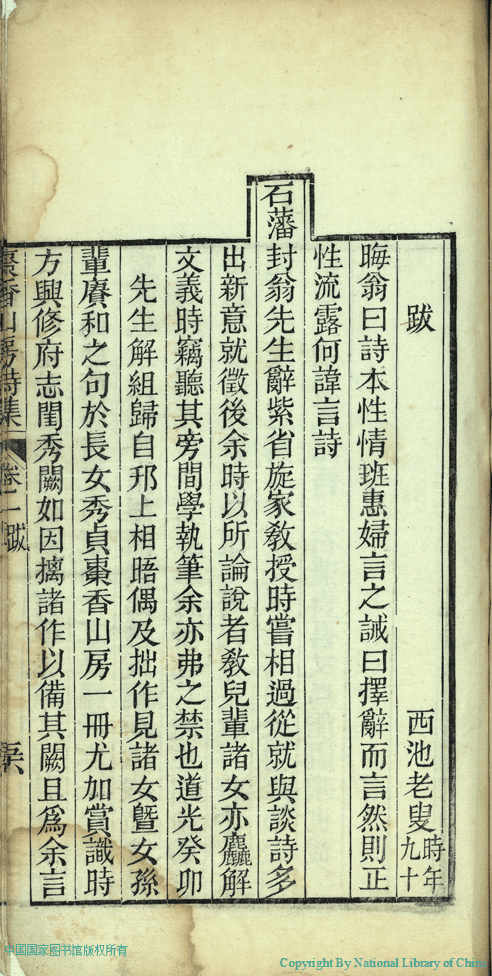 跋
西池老叟時年九十
晦翁曰詩本性情班惠婦言之誡曰擇辭而言然則正
性流露何諱言詩
石藩封翁先生辭紫省旋家敎授時嘗相過從就與談詩多
出新意就徵後余時以所論說者敎兒輩諸女亦麤解
文義時竊聽其旁間學執筆余亦弗之禁也道光癸卯
先生解組歸自邗上相晤偶及拙作見諸女曁女孫
輩賡和之句於長女秀貞棗香山房一冊尤加賞識時
方興修府志閨秀闕如因摛諸作以備其闕且爲余言
棗香山房詩集
卷二
跋
中国国家图书馆版权所有
Copyright By National Library of China